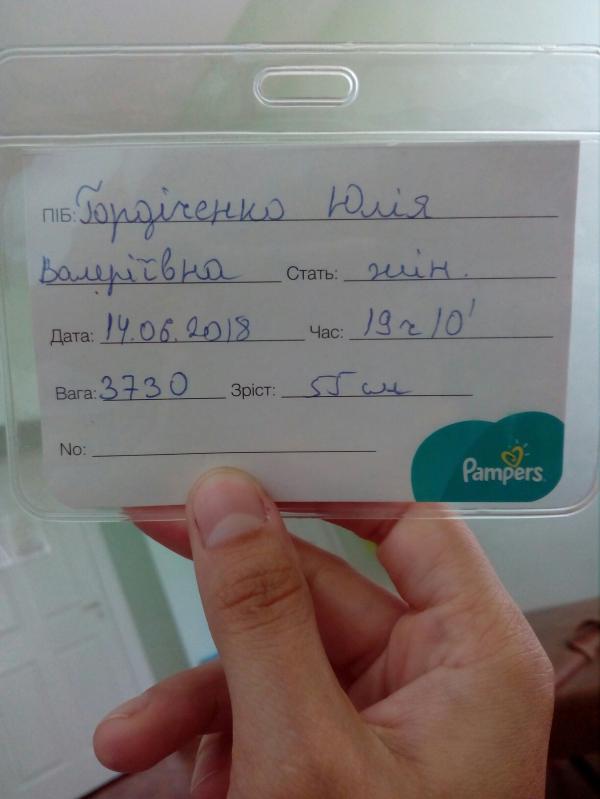 ПІБ: Гордіченко Юлія
Валеріївна Стать: жін.
Дата: 14.06.2018 Час: 19ч 10'
Вага: 3730 Зріст: 55 см
No:
Pampers